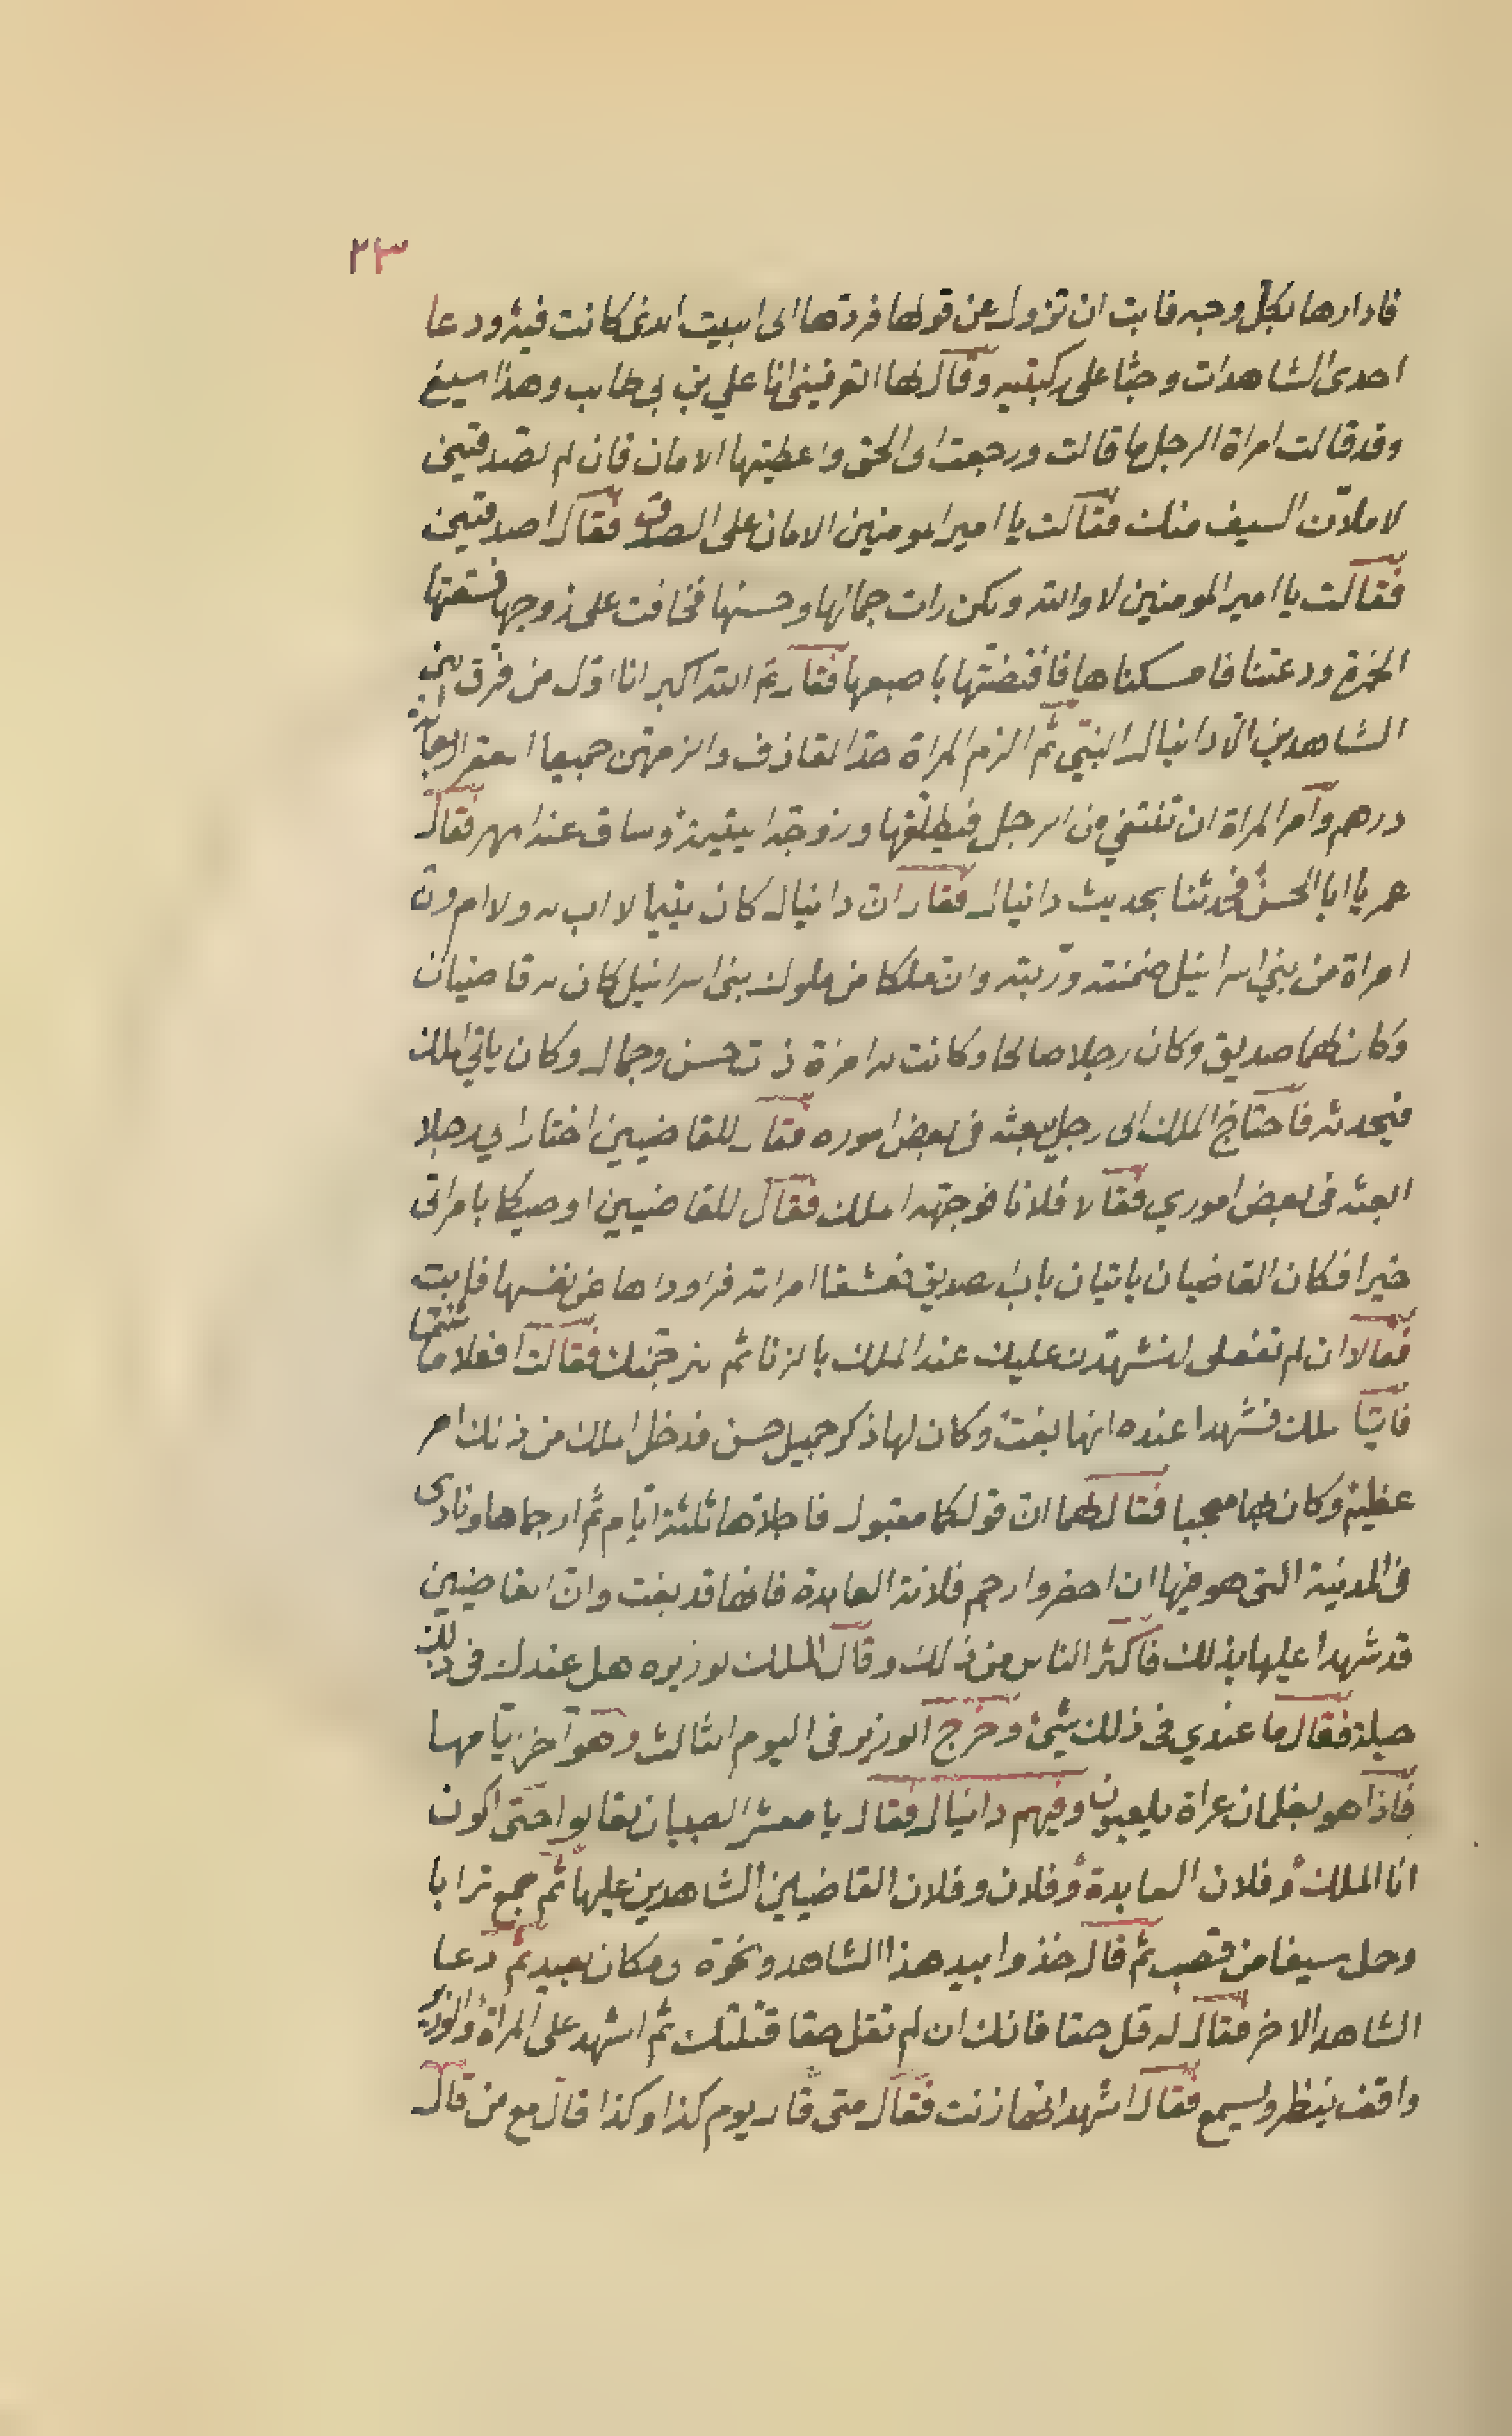 ٢٣
فادارها بكل وجه فابت ان تزول عن قولها فردّها الى البيت الذى كانت فيه ودعا
احدى الشاهدات وجثا على ركبتيه وقال لها اتعرفينى انا علي بن بى طالب وهذا سيفى
وقد قالت امراة الرجل ما قالت ورجعت الى الحق واعطيتها الامان فان لم تصدقينى
لاملانّ السيف منك فقالت يا امير المومنين الامان على الصدق فقال اصدقينى
فقالت يا امير المومنين لا والله ولكن رات جمالها وحسنها فخافت على زوجها فسقتها
الخمرة ودعتنا فامسكناها فافتضّتها باصبعها فقال ع الله اكبر انا اوّل من فرّق بين
الشاهدين الّا دانيال النبيّ ثم الزم المراة حدّ القاذف والزمهنّ جميعا العقر اربعمائة
درهم وامر المراة ان تنتفي من الرجل فيطلّقها وزوجّه اليتيمة وساق عنه المهر فقال
عمر يا ابا الحسن فحدثنا بحديث دانيال فقال انّ دانيال كان يتيما لا اب له ولا ام وانّ
امراة من بني اسرائيل ضمنته وربّته وانّ ملكا من ملوك بنى اسرائيل كان له قاضيان
وكان لهما صديق وكان رجلا صالحا وكانت له امراة ذات حسن وجمال وكان ياتي الملك
فيحدثه فاحتاج الملك الى رجل يبعثه فى بعض اموره فقال للقاضيين اختارا لي رجلا
ابعثه فى بعض اموري فقالا فلانا فوجّهه الملك فقال للقاضيين اوصيكما بامراتى
خيرا فكان القاضيان ياتيان باب الصديق فعشقا امراته فراوداها عن نفسها فابت
فقالا ان لم تفعلى لنشهدنّ عليك عند الملك بالزنا ثم لنرجمنّك فقالت افعلا ما شئتما
فاتيا الملك فشهدا عنده انها بغت وكان لها ذكر جميل حسن فدخل الملك من ذلك امر
عظيم وكان بهما معجبا فقال لهما انّ قولكما مقبول فاجلاها ثلثة ايّام ثم ارجماها ونادى
فى المدينة التى هو فيها ان احضروا رجم فلانة العابدة فانها قد بغت وانّ القاضيين
قد شهدا عليها بذلك فاكثر الناس من ذلك وقال الملك لوزيره هل عندك فى ذلك
حيلة فقال ما عندي فى ذلك شىء وخرج الوزير فى اليوم الثالث وهو آخر ايّامها
فاذا هو بغلمان عراة يلعبون وفيهم دانيال فقال يا معشر الصبيان تعالوا حتى اكون
انا الملك وفلان العابدة وفلان وفلان القاضيين الشاهدين عليها ثم جمع ترابا
وجعل سيفا من قصب ثم قال خذوا بيد هذا الشاهد ونحّوه بمكان بعيد ثم دعا
الشاهد الاخر فقال له قل حقا فانك ان لم تقل حقا قتلتك ثم اشهد على المراة والوزير
واقف ينظر ويسمع فقال اشهد انها زنت فقال متى قال يوم كذا وكذا قال مع من قال